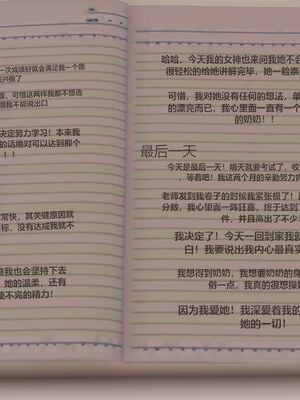 一次成绩好就会满足我一个愿
高兴极了
饭，可惜这两样我都不想选
惜我不能说出口
决定努力学习！本来我
的话绝对可以达到那个
！！
常快，其关键原因就
标，没有达成我就不
我也会坚持下去
她的温柔，还有
使不完的精力！
哈哈，今天我的女神也来问我她不会
很轻松的给她讲解完毕，她一脸崇
可惜，我对她没有任何的想法，单
的漂亮而已，我心里面一直有一个
的奶奶！！
最后一天
今天是最后一天！明天就要考试了，收
，等着吧！我这两个月的辛勤努力
老师发到我卷子的时候我紧张极了！
分数，我心里面一阵狂喜，终于达到了
件，并且高出了不少
我决定了！今天一回到家我就
白！我要说出我内心最真实
我想得到奶奶，我想要奶奶的身
俗一点，我真的很想操
因为我爱她！我深爱着我的
她的一切！